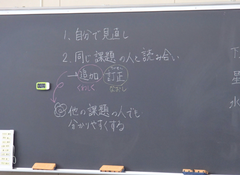 1. 自分で見直し
2. 同じ課題の人と読み合い
追加 訂正
他の課題の人でも
分かりやすくする